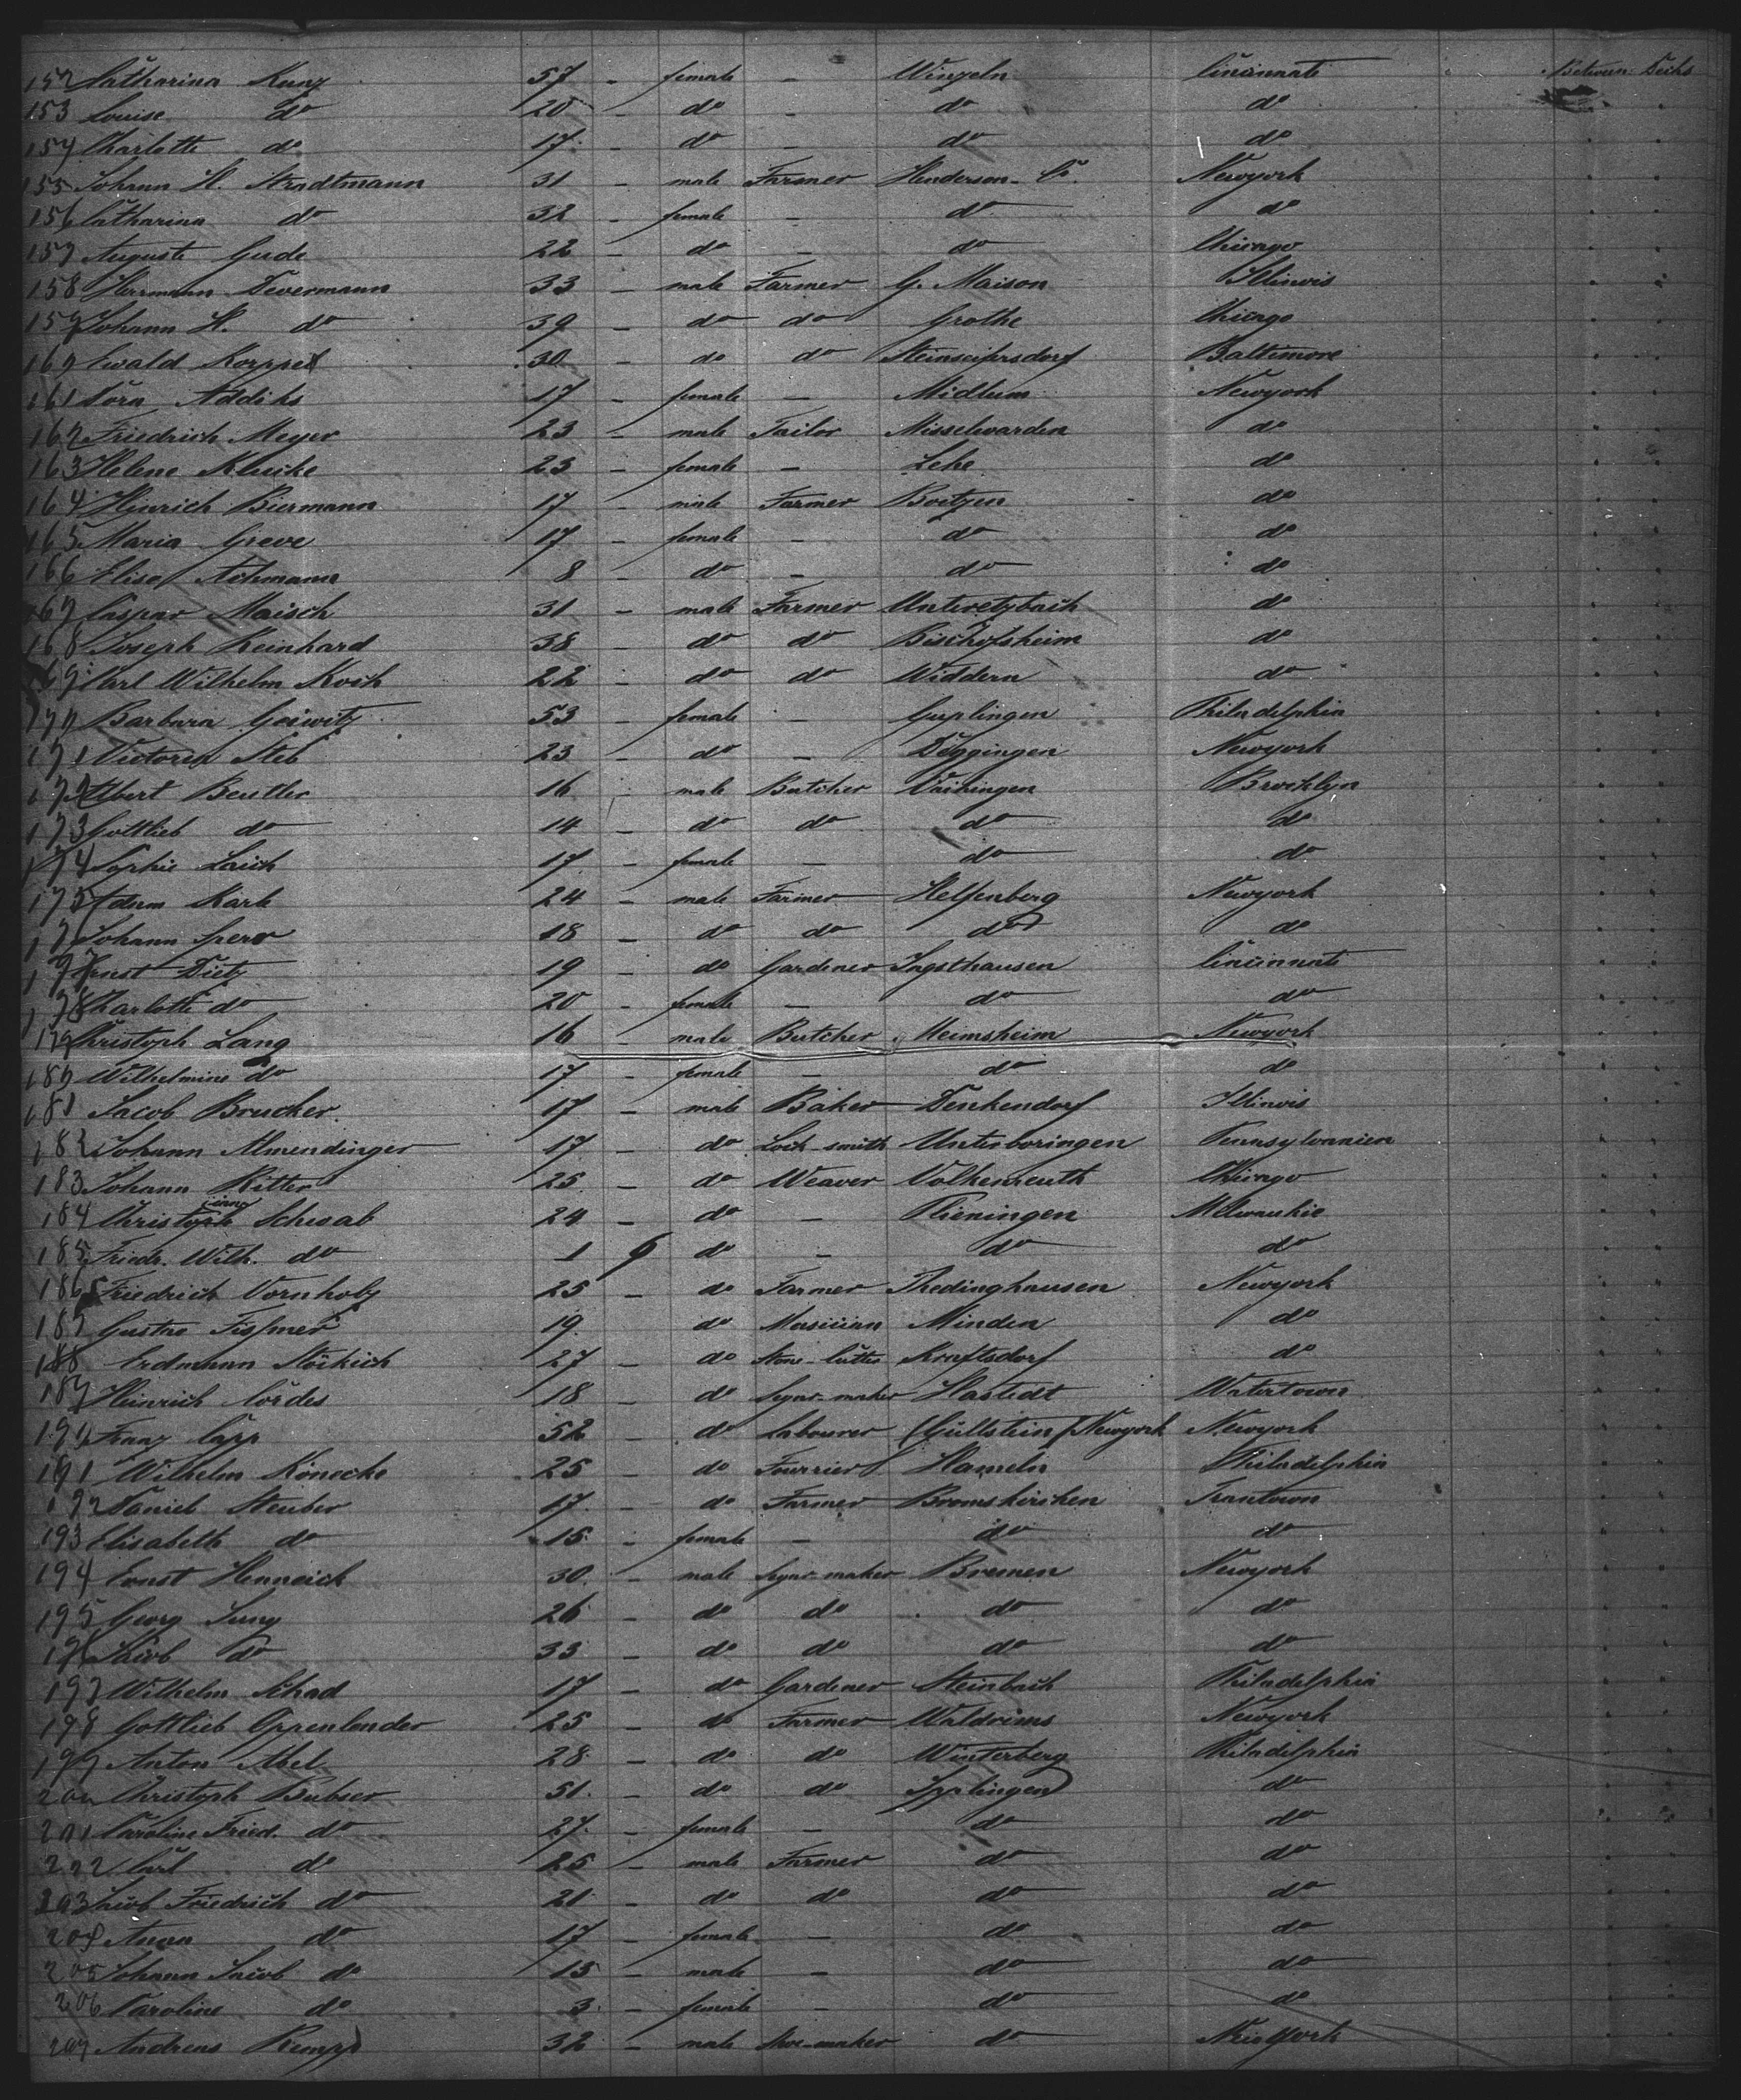 152 Catharina Kunz 57 - female - Winzeln Cincinnati Between Decks
153 Louise do 20 - do - do do
154 Charlotte do 17 - do - do do
155 Johann H. Stradtmann 31 - male Farmer Henderson Newyork
156 Catharina do 32 - female - do do
157 Auguste Gude 22 - do - do Chicago
158 Herrmann Devermann 33 - male Farmer G. Maison Illinois
159 Johann H. do 39 - do do Grothe Chicago
160 Ewald Korppel 30 - do do Steinseifersdorf Baltimore
161 Dora Addiks 17 - female - Midlum Newyork
162 Friedrich Meyer 23 - male Tailor Misselwarden do
163 Helene Klucke 23 - female - Lehe do
164 Hinrich Biermann 17 - male Farmer Boitzen do
165 Maria Greve 17 - female - do do
166 Elise 8 - do - do do
167 Caspar Maisch 31 - male Farmer Unteretzbach do
168 Joseph Reinhard 38 - do do Bischofsheim do
169 Carl Wilhelm Koch 22 - do do Widdern do
170 Barbara Geiwitz 53 - female - Guplingen Philadelphia
171 Victoria Steb 23 - do - Deggingen Newyork
172 Albert Beutler 16 - male Butcher Vaihingen Brocklyn
173 Gottlieb do 14 - do do do do
174 Sophie Laich 17 - female - do do
175 Adam Karle 24 - male Farmer Helfenberg Newyork
17 Johann Spero 18 - do do do do
177 Ernst Dietz 19 - do Gardener Jagsthausen Cincinnati
178 Charlotte do 20 - female - do do
179 Christoph Lang 16 - male Butcher Heimsheim Newyork
180 Wilhelmine do 17 - female - do do
181 Jacob Brucker 17 - male Baker Denkendorf Illinois
182 Johann Almendinger 17 - do Lock-smith Unterboringen Pennsylvanien
183 Johann Ritter 25 - do Weaver Volkenreuth Chicago
184 Christoph Schwab 24 - do - Plieningen Milwaukie
185 Friedr. Wilh. do 1 9 do - do do
186 Friedrich Vornholz 25 - do Farmer Thedinghausen Newyork
187 Gustav Fissmer 19 do Musician Minden do
188 Erdmann Stöckich 27 - do Stone-Cutter Kraftsdorf do
189 Heinrich Cordes 18 - do Segar-maker Hastedt Watertown
190 Franz Capp 52 - do Labourer (Gültstein) Newyork Newyork
191 Wilhelm Könecke 25 - do Fourrier Hameln Philadelphia
192 Daniel Steuber 17 - do Farmer Bromskirchen Trantown
193 Elisabeth do 15 - female - do do
194 Ernst Henneick 30 - male Segar-maker Bremen Newyork
195 Georg Jung 26 - do do do do
196 Jacob do 33 - do do do do
197 Wilhelm Schad 17 - do Gardener Steinbach Philadelphia
198 Gottlieb Oppenlender 25 - do Farmer Waldrems Newyork
199 Anton Abel 28 - do do Winterberg Philadelphia
200 Christoph Bubser 51 - do do Ipplingen do
201 Caroline Fried. do 27 - female - do do
202 Carl do 25 - male Farmer do do
203 Jacob Friedrich do 21 - do do do do
204 Anna do 17 - female - do do
205 Johann Jacob do 15 - male - do do
206 Caroline do 3 - female - do do
207 Andreas Rempp 32 - male Shoe-maker do New York